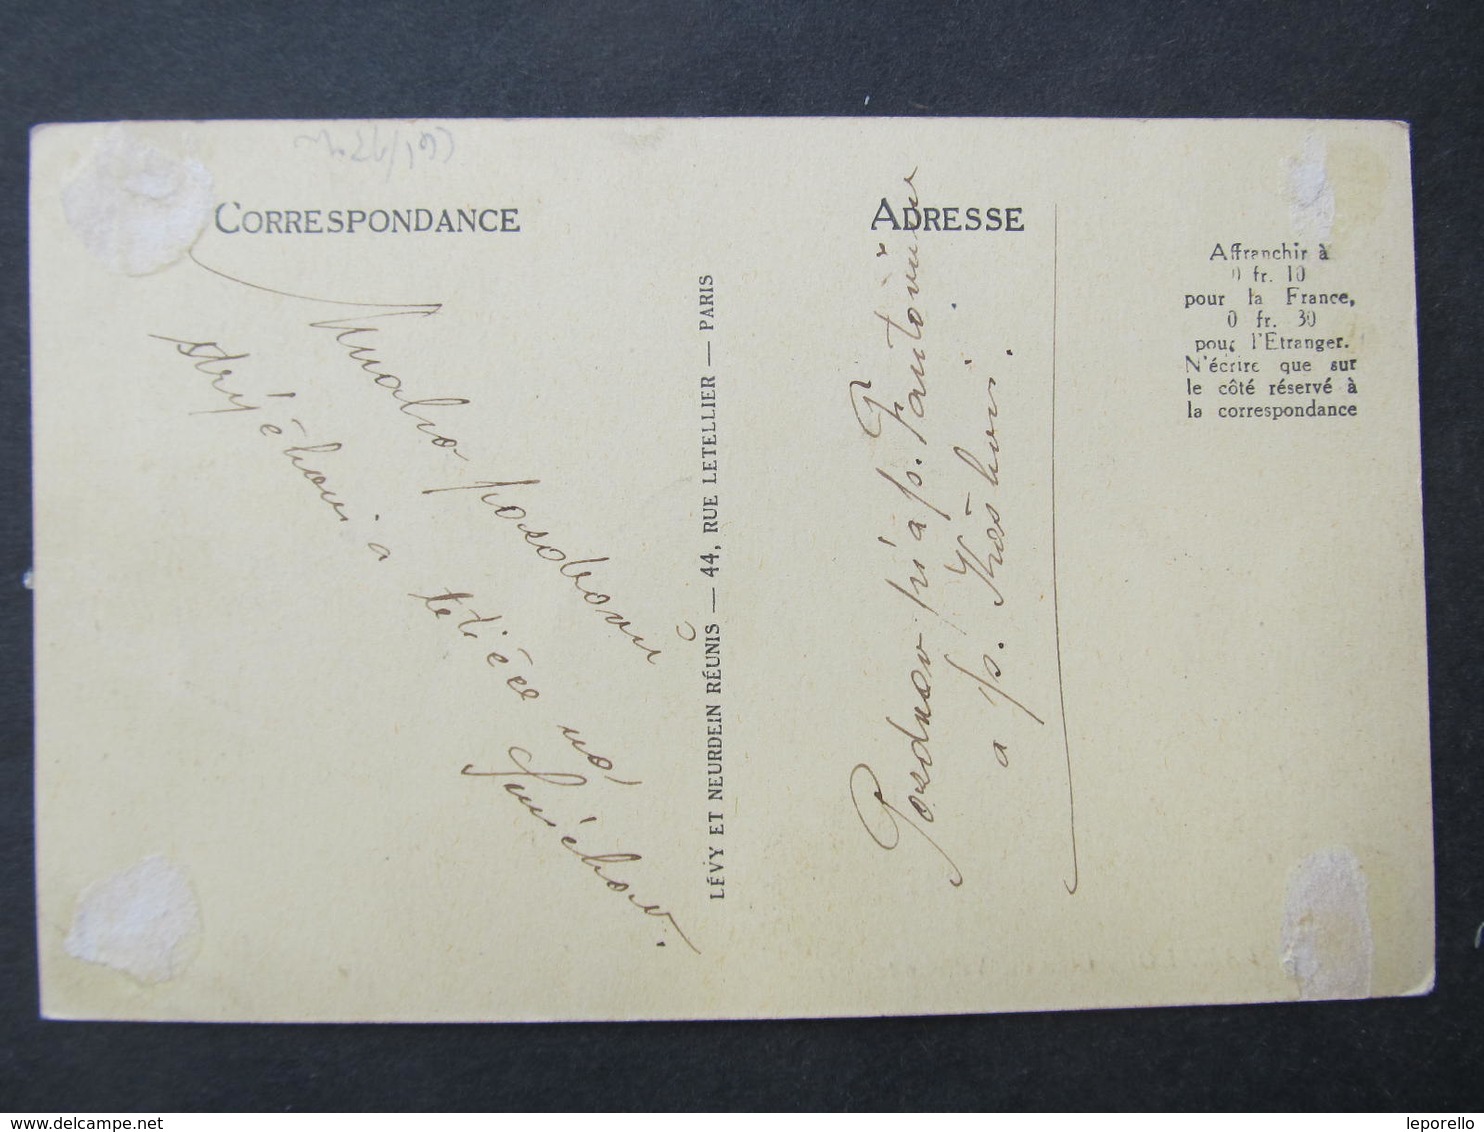 CORRESPONDANCE
Mnoho pozdravu
strýčkovi a tetičce od
ADRESSE
Pozdrav pří a p.
a p.
Affranchir à
0 fr. 10
pour la France,
0 fr. 30
pour l'Etranger.
N'écrire que sur
le côté réservé à
la correspondance
LÉVY ET NEURDEIN RÉUNIS — 44, RUE LETELLIER — PARIS
www.delcampe.net
leporello